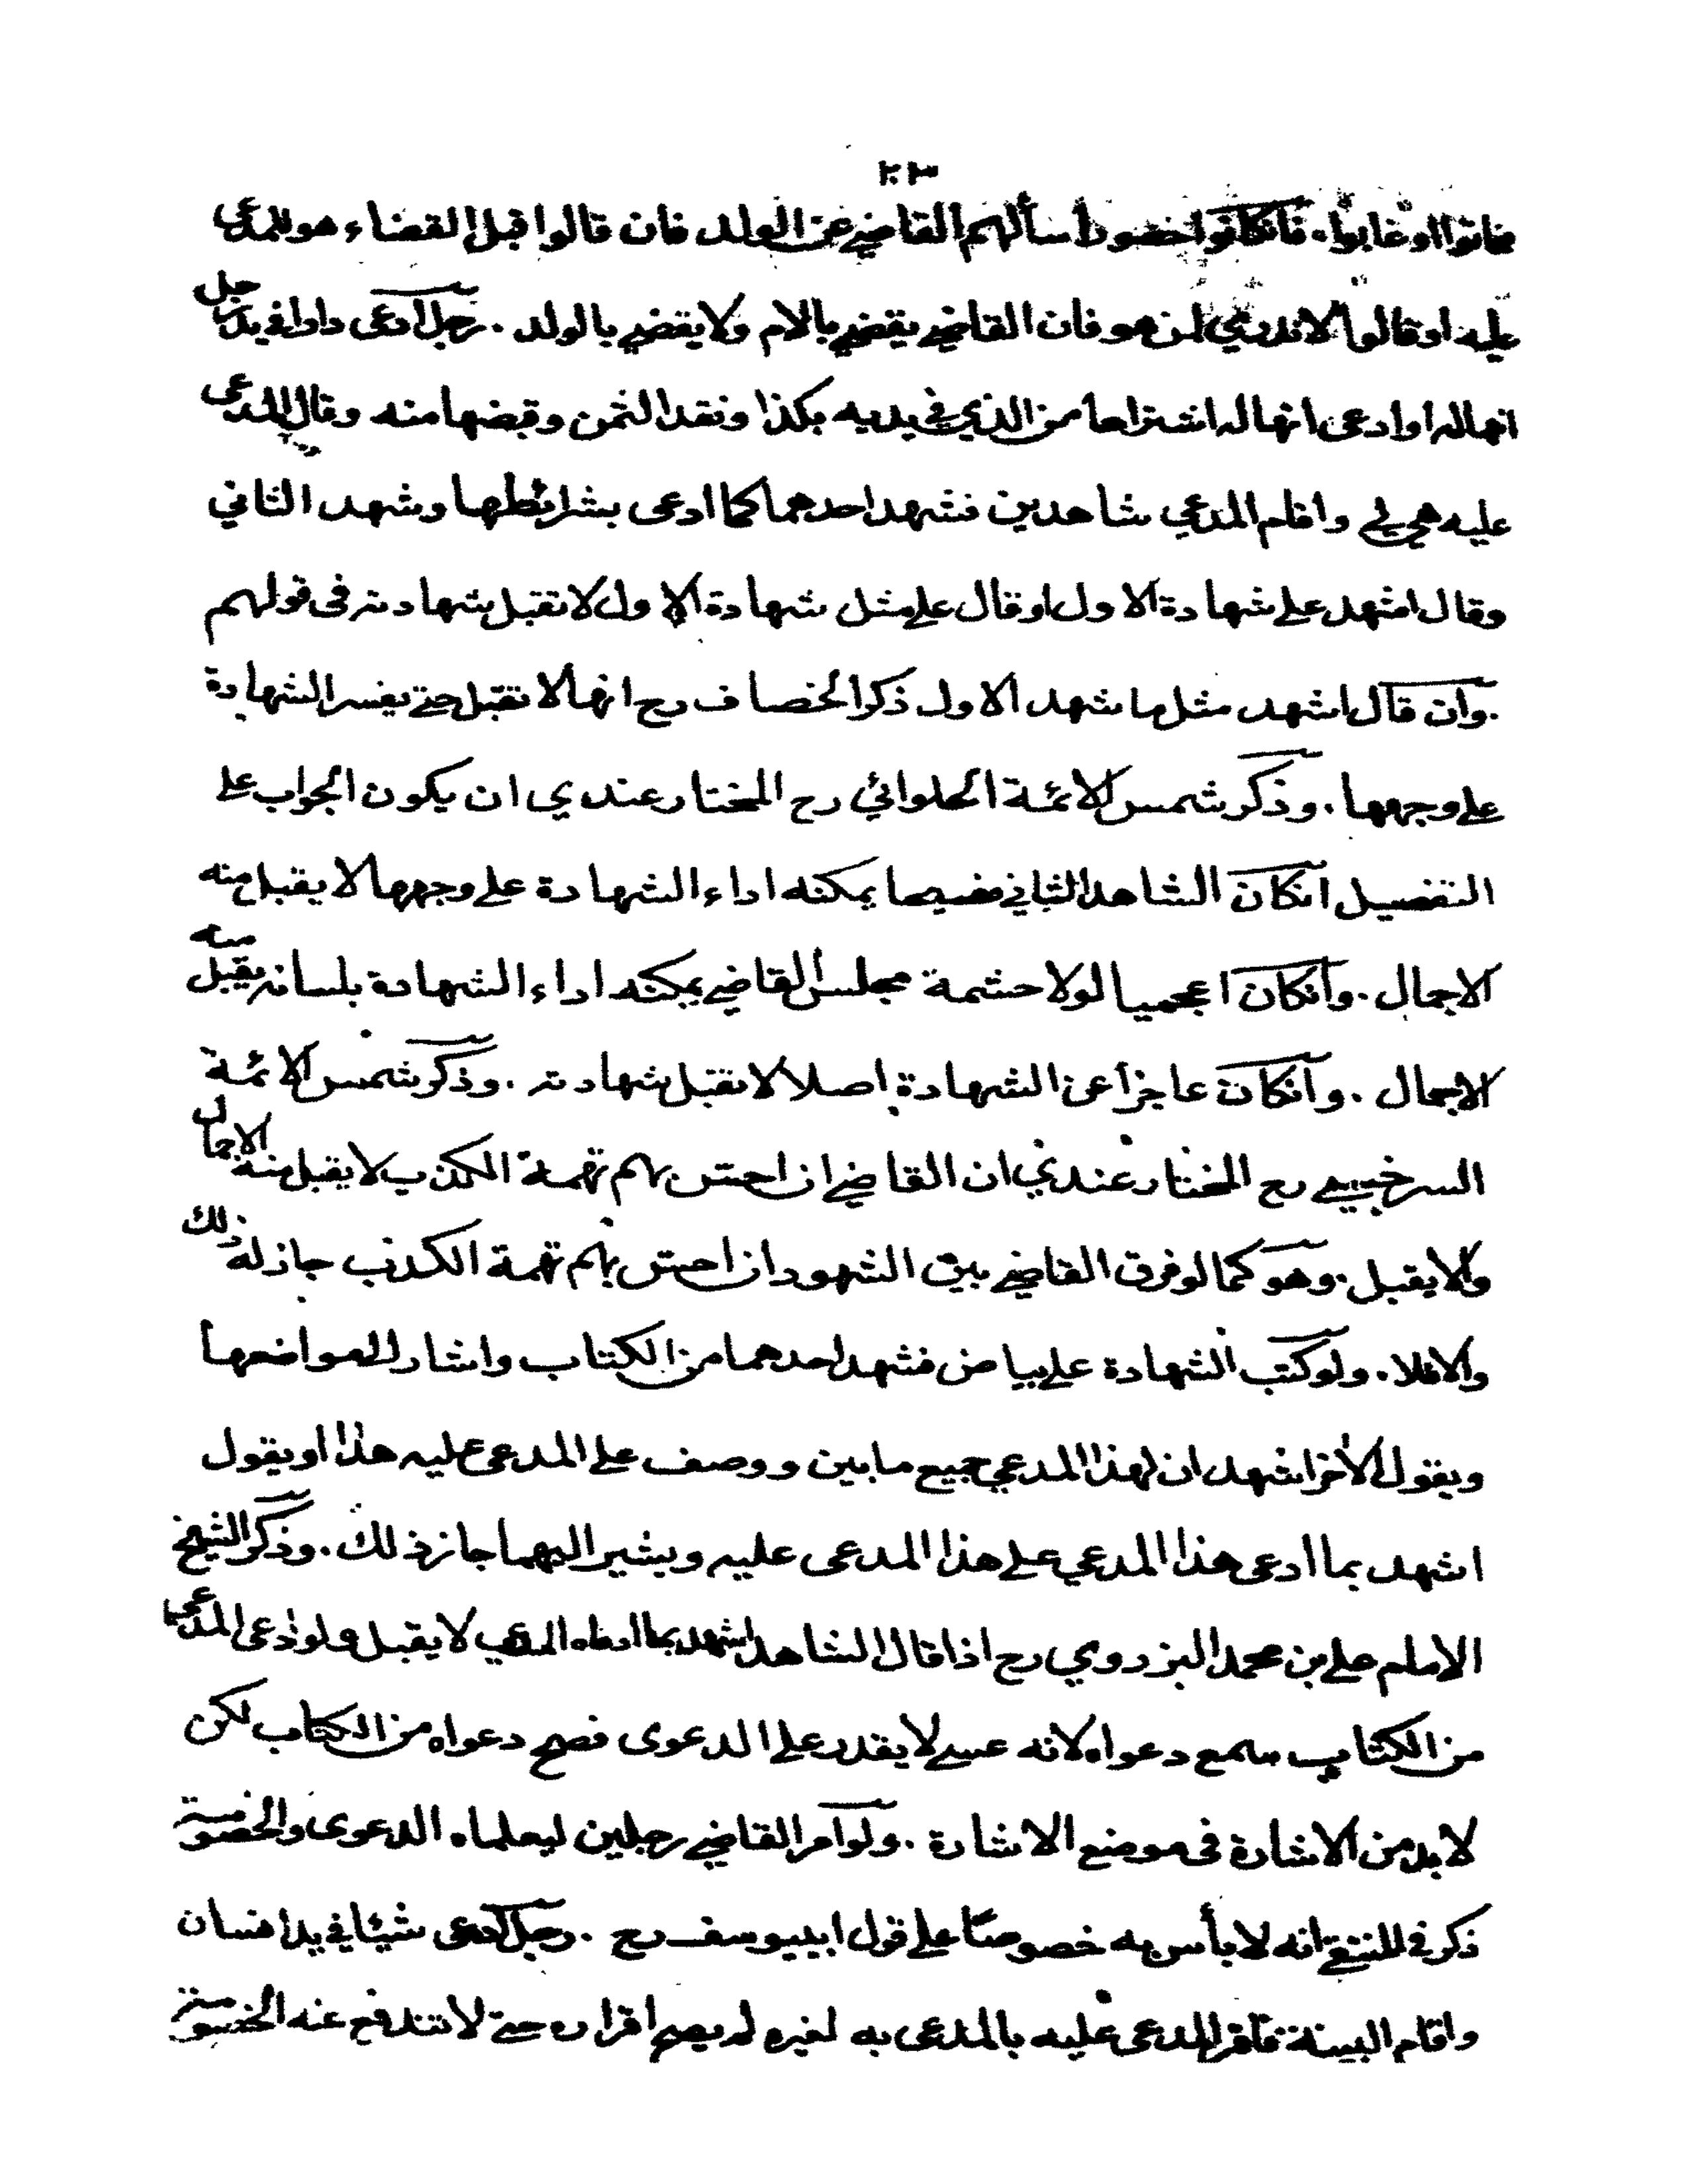 ٢٠٣
ماتوا او غابوا . فانكانوا حضورا سألهم القاضي عن الولد فان قالوا قبل القضاء هو للمدعى
عليه او قالوا لا ندري لمن هو فان القاضي يقضي بالام ولا يقضي بالولد . رجل ادعى دارا في يد رجل
انها له او ادعى انها له اشتراها من الذي في يديه بكذا ونقد الثمن وقبضها منه وقال المدعى
عليه هي لي واقام المدعي شاهدين فشهد احدهما كما ادعى بشرائطها وشهد الثاني
وقال اشهد على شهادة الاول او قال على مثل شهادة الاول لا تقبل شهادته فى قولهم
. وان قال اشهد مثل ما شهد الاول ذكر الخصاف رح انها لا تقبل حتى يفسر الشهادة
على وجهها . وذكر شمس الائمة الحلوائي رح المختار عندي ان يكون الجواب على
التفصيل انكان الشاهد الثاني فصيحا يمكنه اداء الشهادة على وجهها لا يقبل منه
الاجمال . وانكان اعجميا لولا حشمة مجلس القاضي يمكنه اداء الشهادة بلسانه يقبل منه
الاجمال . وانكان عاجزا عن الشهادة اصلا لا تقبل شهادته . وذكر شمس الائمة
السرخسي رح المختار عندي ان القاضي ان احس بهم تهمة الكذب لا يقبل منه الاجمال
والا يقبل . وهو كما لو فرق القاضي بين الشهود ان احس بهم تهمة الكذب جاز له ذلك
والا فلا . ولو كتب الشهادة على بياض فشهد احدهما من الكتاب واشار الى مواضعها
ويقول الاخر اشهد ان لهذا المدعي جميع ما بين و وصف على المدعى عليه هذا او يقول
اشهد بما ادعى هذا المدعي على هذا المدعى عليه ويشير اليهما جاز ذلك . وذكر الشيخ
الامام على بن محمد البزدوي رح اذا قال الشاهد اشهد بما ادعاه المدعي لا يقبل ولو ادعى المدعي
من الكتاب سمع دعواه لانه عسى لا يقدر على الدعوى فصح دعواه من الكتاب لكن
لا بد من الاشارة فى موضع الاشارة . ولو امر القاضي رجلين ليعلماه الدعوى والخصومة
ذكر في المنتقى انه لا بأس به خصوصا على قول ابي يوسف رح . رجل ادعى شيئا في يد انسان
واقام البينة فاقر المدعى عليه بالمدعى به لغيره لم يصح اقراره حتى لا تندفع عنه الخصومة